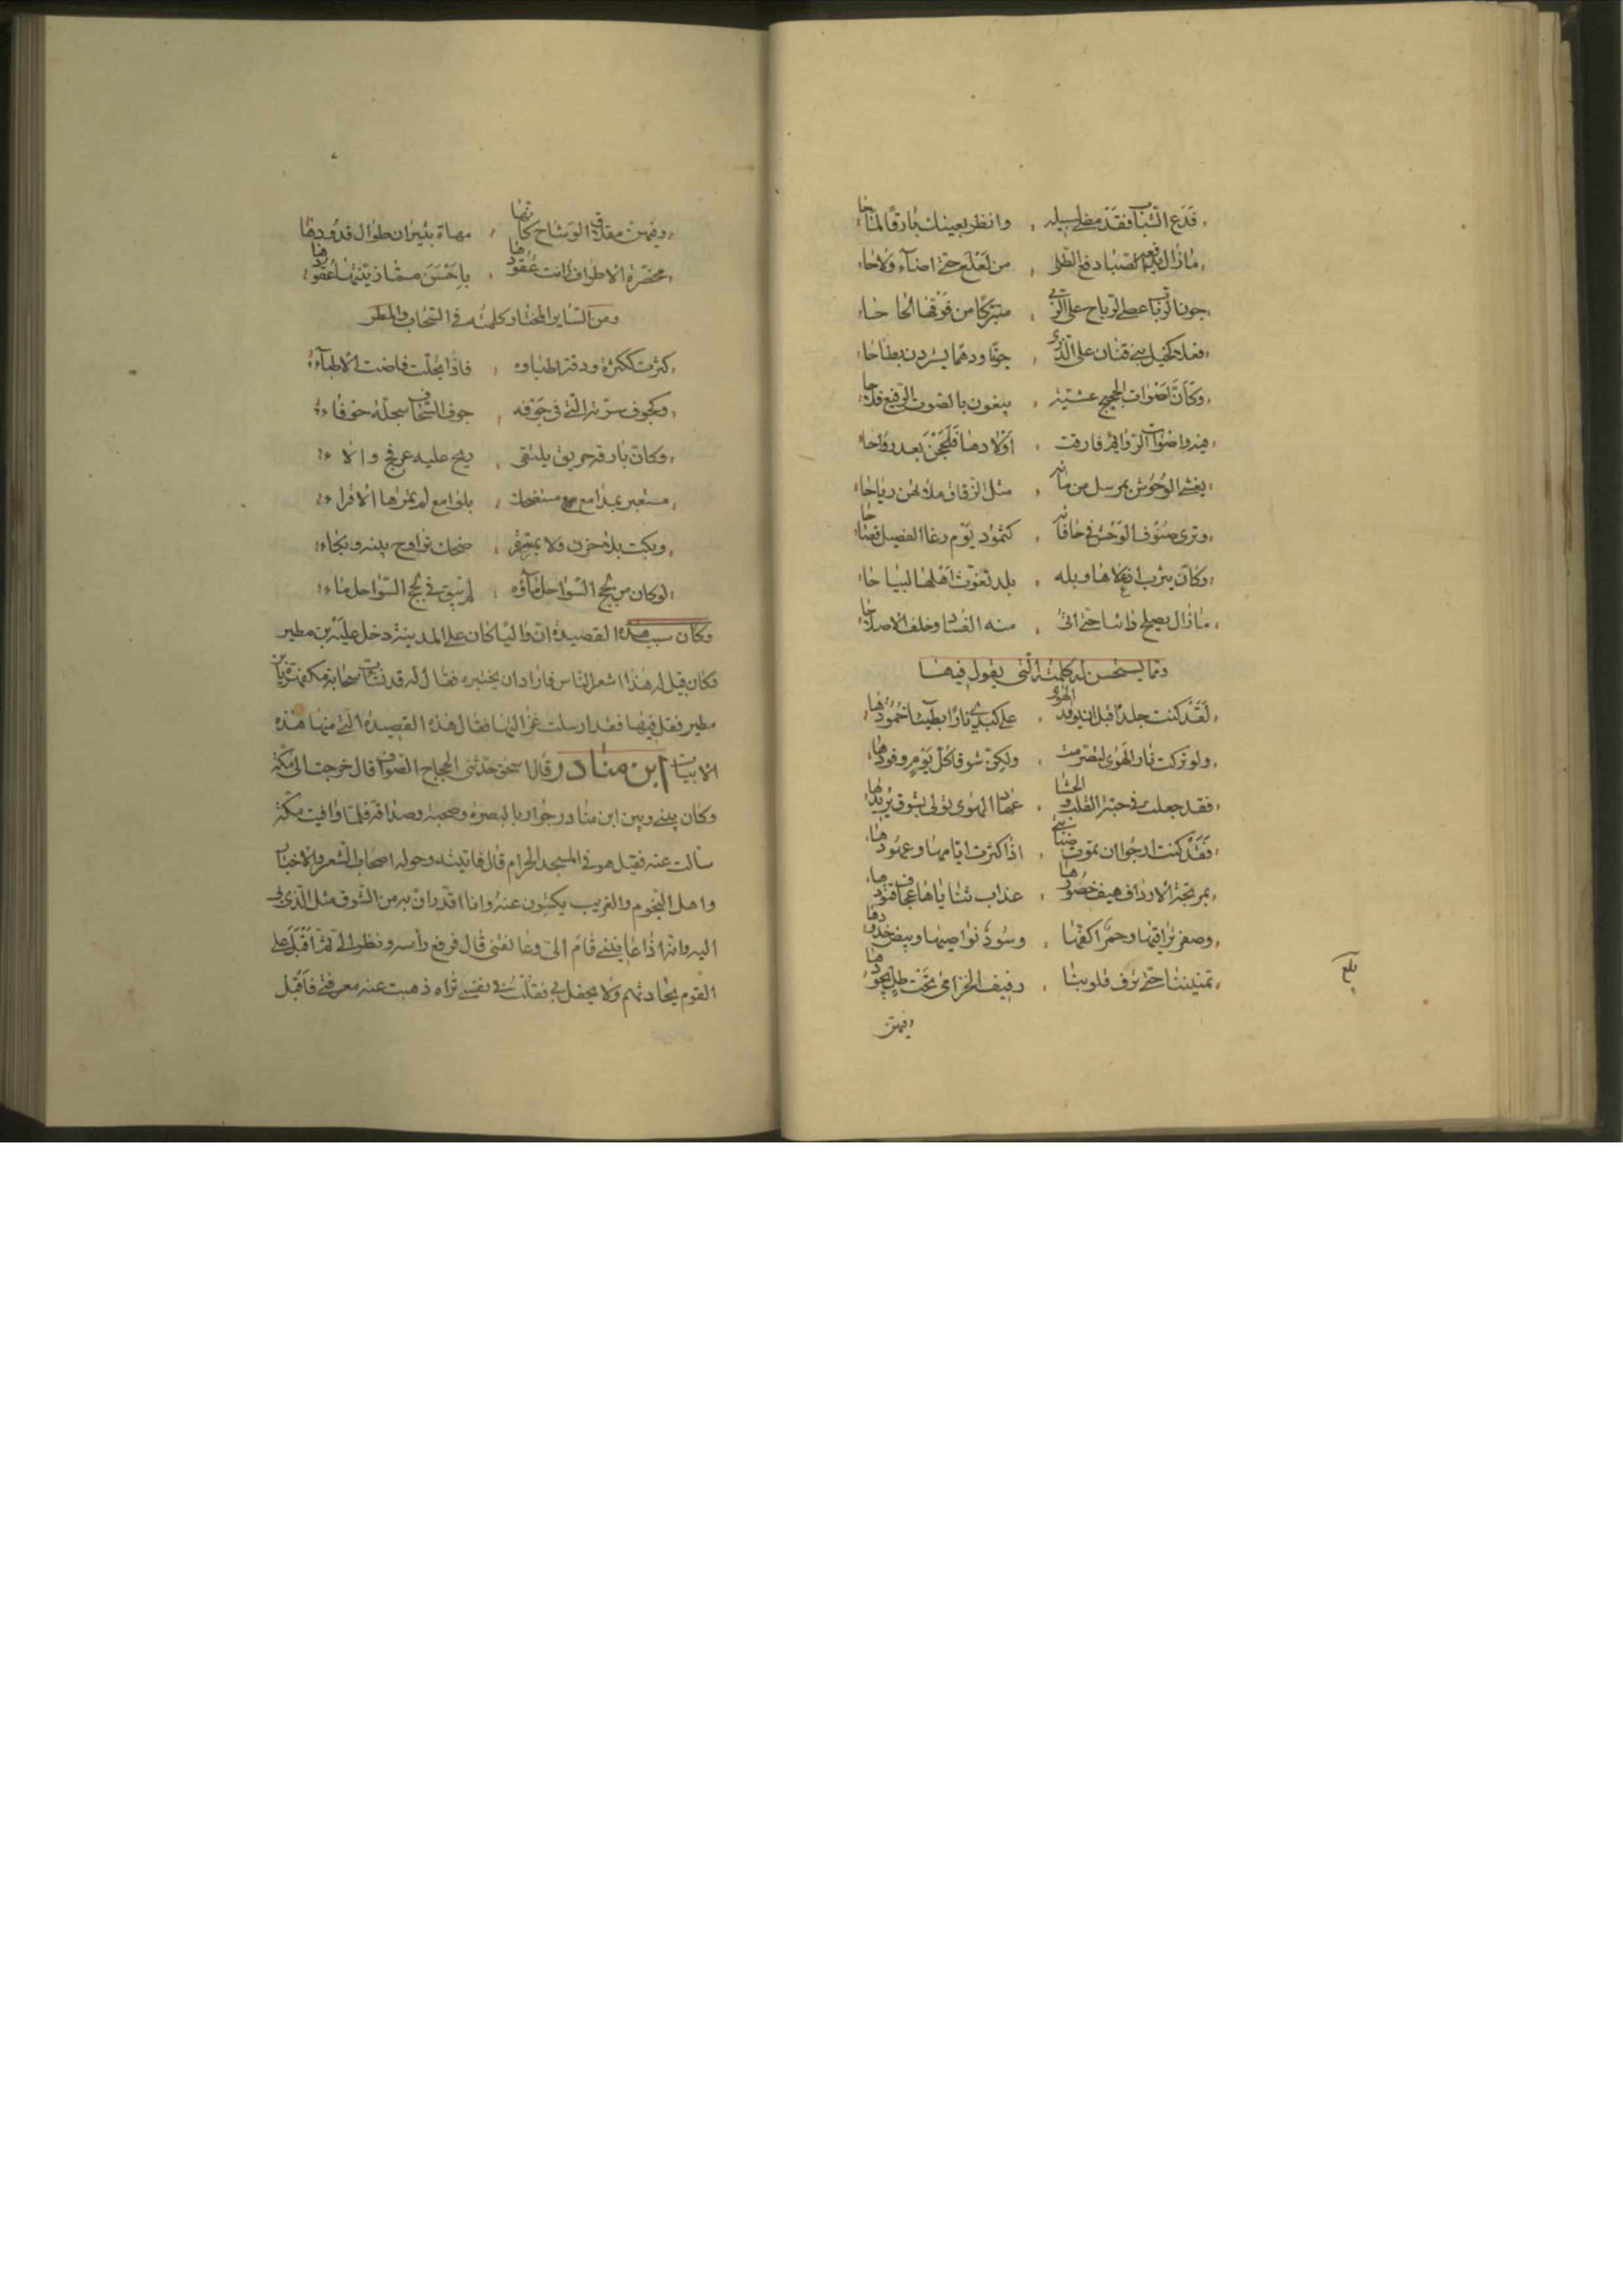 فدع الشباب فقد مضى لسبيله ، وانظر بعينك بارقا لماحا
ما زال يدفعه الصبا دفع الطلى ، من لعلع حتى اضاء ولاحا
جون الرباب عصى الرياح على الربى ، متبركا من فوقها الحاحا
فعلا كخيل بني قنان على الذرى ، جونا ودهما يسردن بطاحا
وكأن اصوات الحجيج عشية ، يبغون بالصوت الرفيع فلاحا
فيه واصوات الروائم فارقت ، اولادها فلججن بعد رواحا
يغشى الوحوش بمرسل من مائه ، مثل الزقاق ملأتهن رياحا
وترى صنوف الوحش في حافاته ، كثمود يوم رغا الفصيل فصاحا
وكأن يثرب اذ علاها وبله ، بلد تغوث اهلها البياحا
ما زال يصيح دائبا حتى اتى ، منه الفساد وخلف الاصلاحا
ومما يستحسن له كلمته التي يقول فيها
لقد كنت جلدا قبل ان يوقد الهوى ، على كبدي نارا بطيئا خمودها
ولو تركت نار الهوى لتصرمت ، ولكن شوقا كل يوم وقودها
فقد جعلت في حبة القلب والحشا ، عهاد الهوى تولى بشوق يزيدها
فقد كنت ارجو ان تموت صبابتي ، اذا كثرت ايامها وعهودها
بمرتجة الارداف هيف خصورها ، عذاب ثناياها عجاف قيودها
وصفر تراقيها وحمر اكفها ، وسود نواصيها وبيض خدودها
تمنيننا حتى ترف قلوبنا ، رفيف الخزامى تحت طل يجودها
وفيهن
بلغ
وفيهن مقلاق الوشاح كأنها ، مهاة بتيران طوال قدودها
مخضرة الاطراف زانت عقودها ، باحسن مما زينتها عقودها
ومن السائر المختار كلمته في السحاب والمطر
كثرت ككثرة ودقه اطباؤه ، فاذا تجلت فاضت الاطباء
وكجوف سرته التي في جوفه ، جوف السحاب سجله جوفاء
وكأن بارقه حريق يلتقى ، ريح عليه عرفج والاء
مستعبر بمدامع مستضحك ، بلوامع لم تمرها الاقراء
وبكت بلا حزن ولا بمسرة ، ضحك نواوح بينه وبكاء
لو كان من لجج السواحل ماؤه ، لم يبق في لجج السواحل ماء
وكان سبب هذه القصيدة ان واليا كان على المدينة دخل عليه بن مطير
فكان قيل له هذا اشعر الناس فاراد ان يختبره فقال له قد نشأت سحابة مكفهرة يا بن
مطير فقل فيها فقد ارسلت غزاليها فقال هذه القصيدة التي منها هذه
الابيات ابن مناذر وقال اسحق حدثني الحجاج الصواف قال خرجت الى مكة
وكان بيني وبين ابن مناذر جوار بالبصرة وصحبة وصداقة فلما وافيت مكة
سألت عنه فقيل هو في المسجد الحرام قال فاتيته وحوله اصحاب الشعر والاخبار
واهل النجوم والغريب يكتبون عنه وانا اقدر ان به من الشوق مثل الذي بي
اليه وانه اذا عاينني قام الي وعانقني قال فرفع رأسه ونظر الي ثم اقبل على
القوم يحادثهم ولا يحفل بي فقلت في نفسي تراه ذهبت عنه معرفتي فاقبل